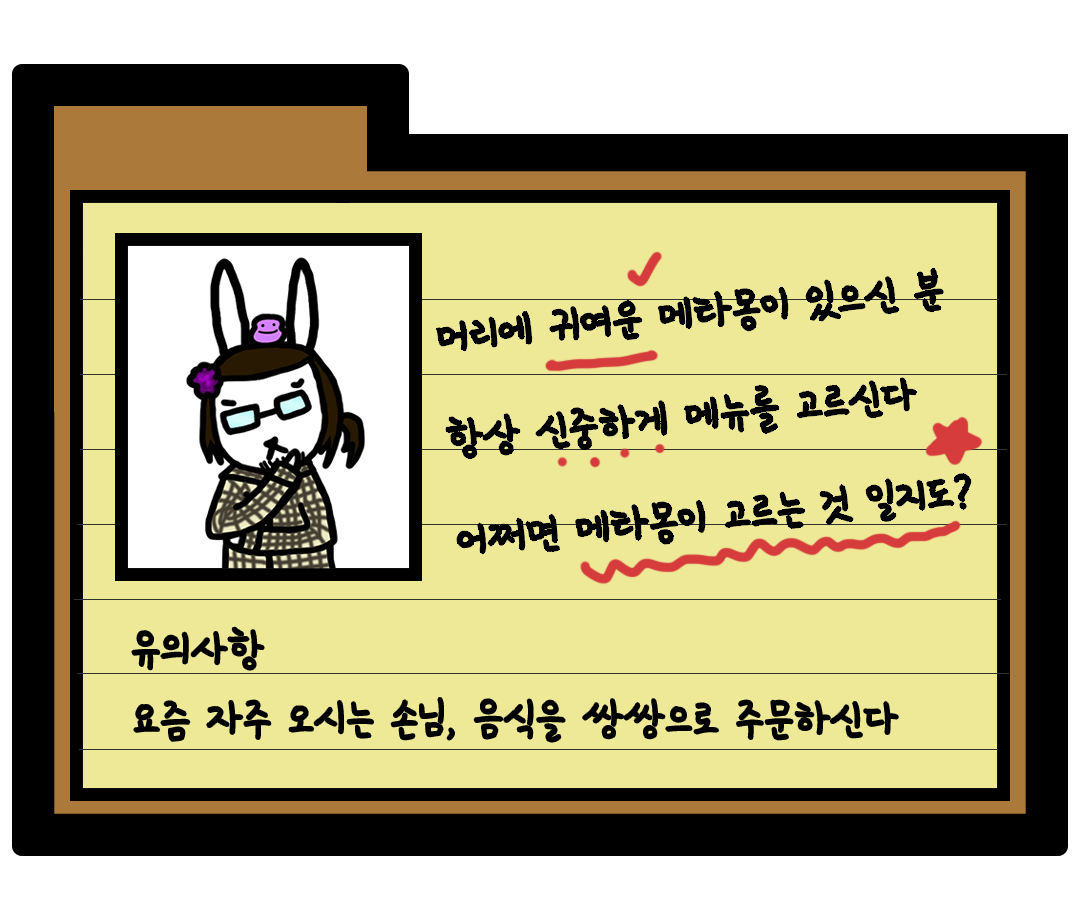 머리에 귀여운 메타몽이 있으신 분
항상 신중하게 메뉴를 고르신다
어쩌면 메타몽이 고르는 것 일지도?
유의사항
요즘 자주 오시는 손님, 음식을 쌍쌍으로 주문하신다